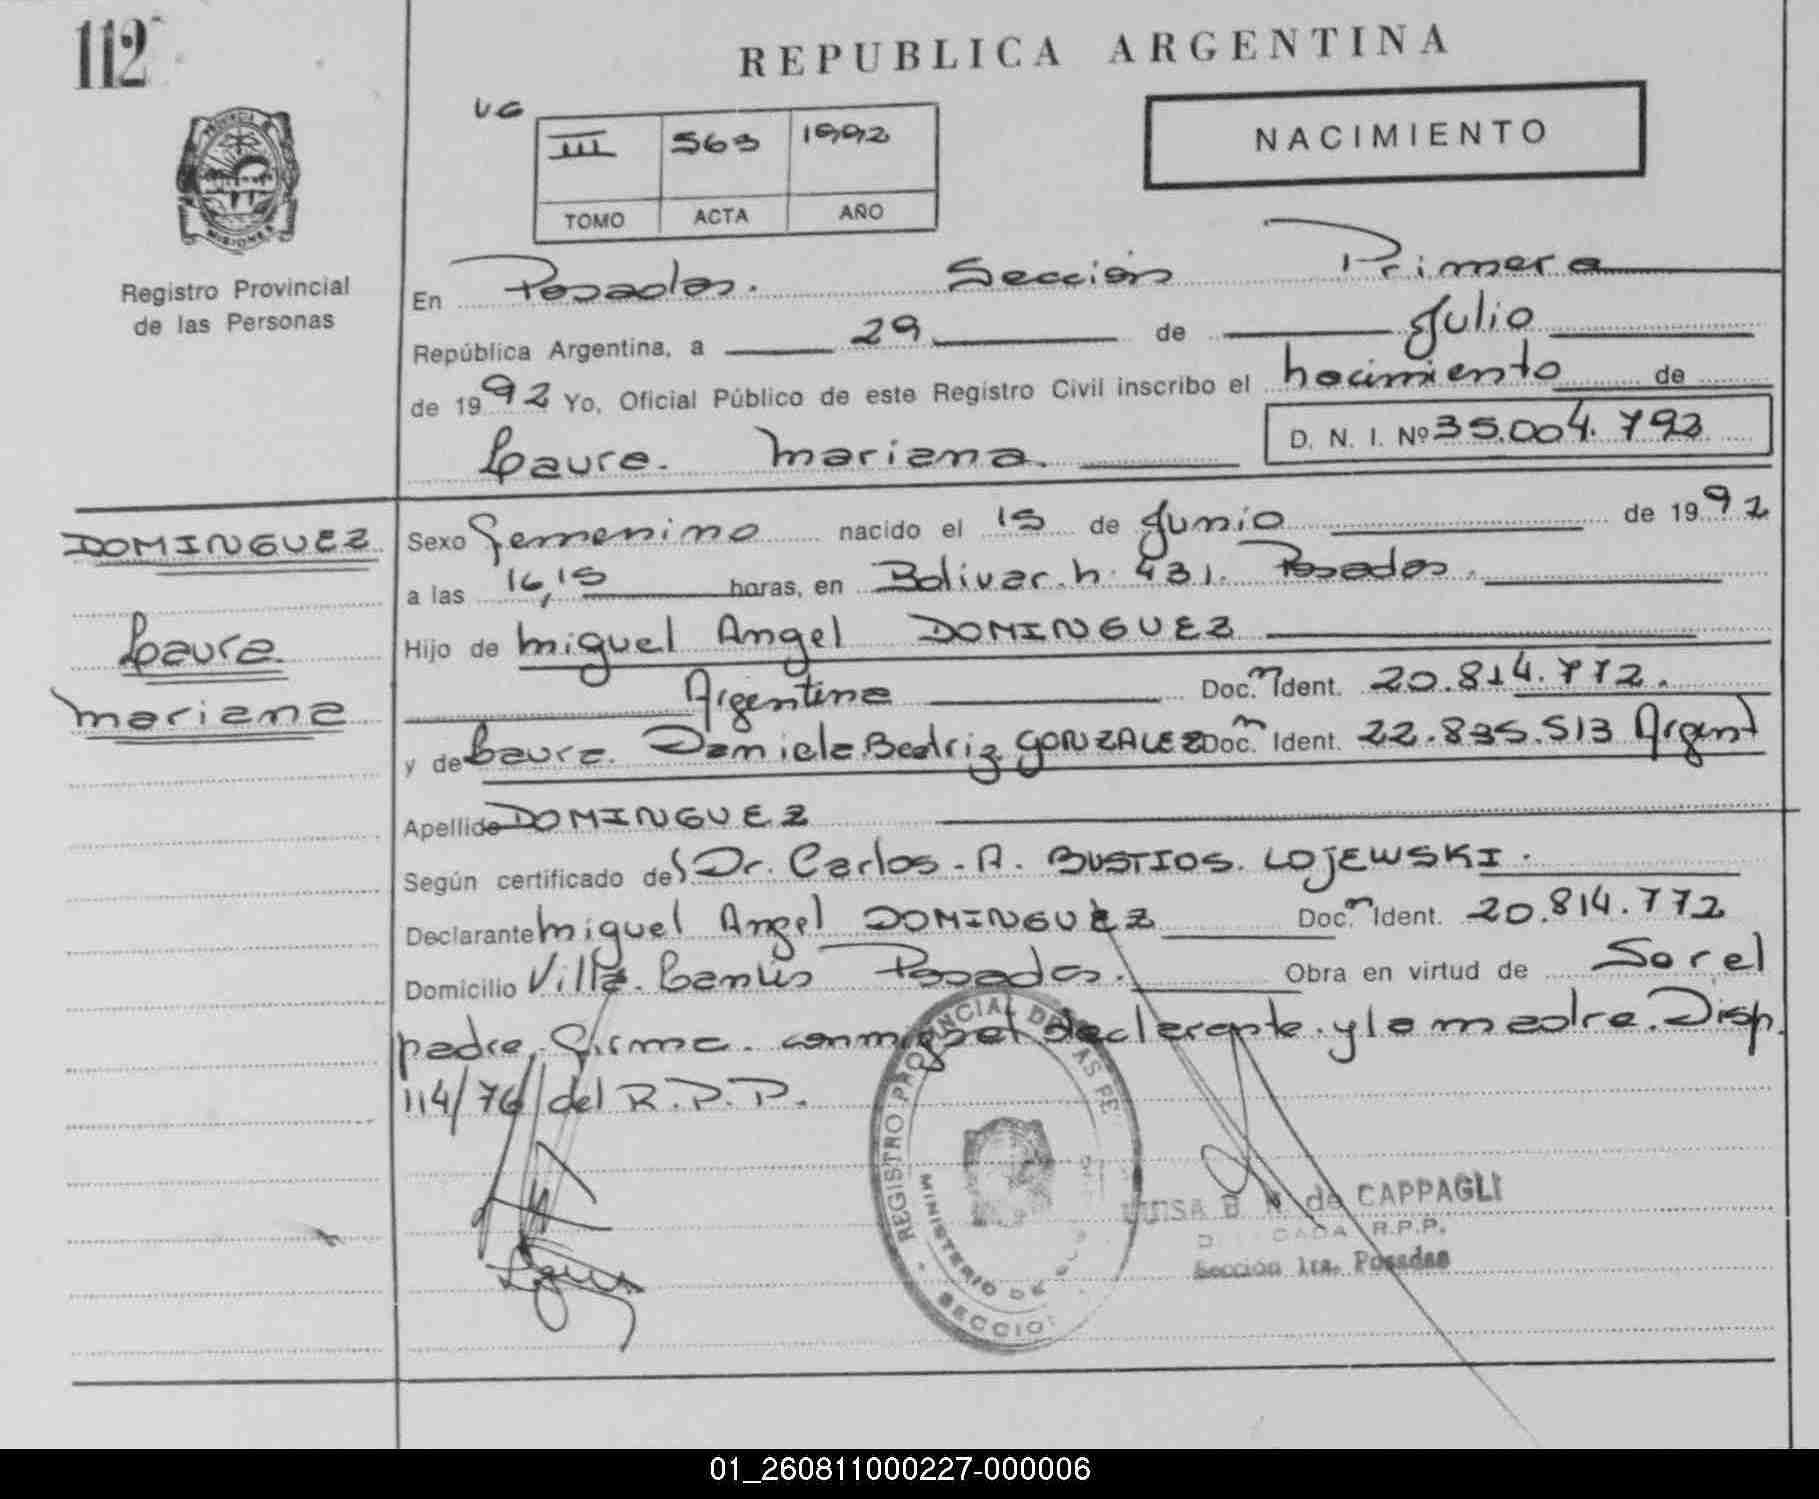 112
REPUBLICA ARGENTINA
UG
III 563 1992
TOMO ACTA AÑO
NACIMIENTO
PROVINCIA DE MISIONES
Registro Provincial
de las Personas
En Posadas. Sección Primera
República Argentina, a 29 de Julio
de 1992 Yo, Oficial Público de este Registro Civil inscribo el nacimiento de
Laura. Mariana. D. N. I. Nº 35.004.792
DOMINGUEZ
Laura
Mariana
Sexo Femenino nacido el 15 de Junio de 1992
a las 16,15 horas, en Bolivar. n. 431. Posadas.
Hijo de Miguel Angel DOMINGUEZ
Argentina Doc. n Ident. 20.814.772.
y de Laura. Daniela.Beatriz.GONZALEZ Doc. n Ident. 22.835.513 Argent
Apellido DOMINGUEZ
Según certificado del Dr. Carlos. A. BUSTIOS. LOJEWSKI.
Declarante Miguel Angel DOMINGUEZ Doc. n Ident. 20.814.772
Domicilio Villa. Lanús Posadas. Obra en virtud de Ser el
padre, firma. conmigo el declarante. y la madre. Disp.
114/76/del R.P.P.
REGISTRO PROVINCIAL DE LAS PE
MINISTERIO DE
SECCIO
LUISA B de CAPPAGLI
R.P.P.
Sección 1ra. Posadas
01_260811000227-000006